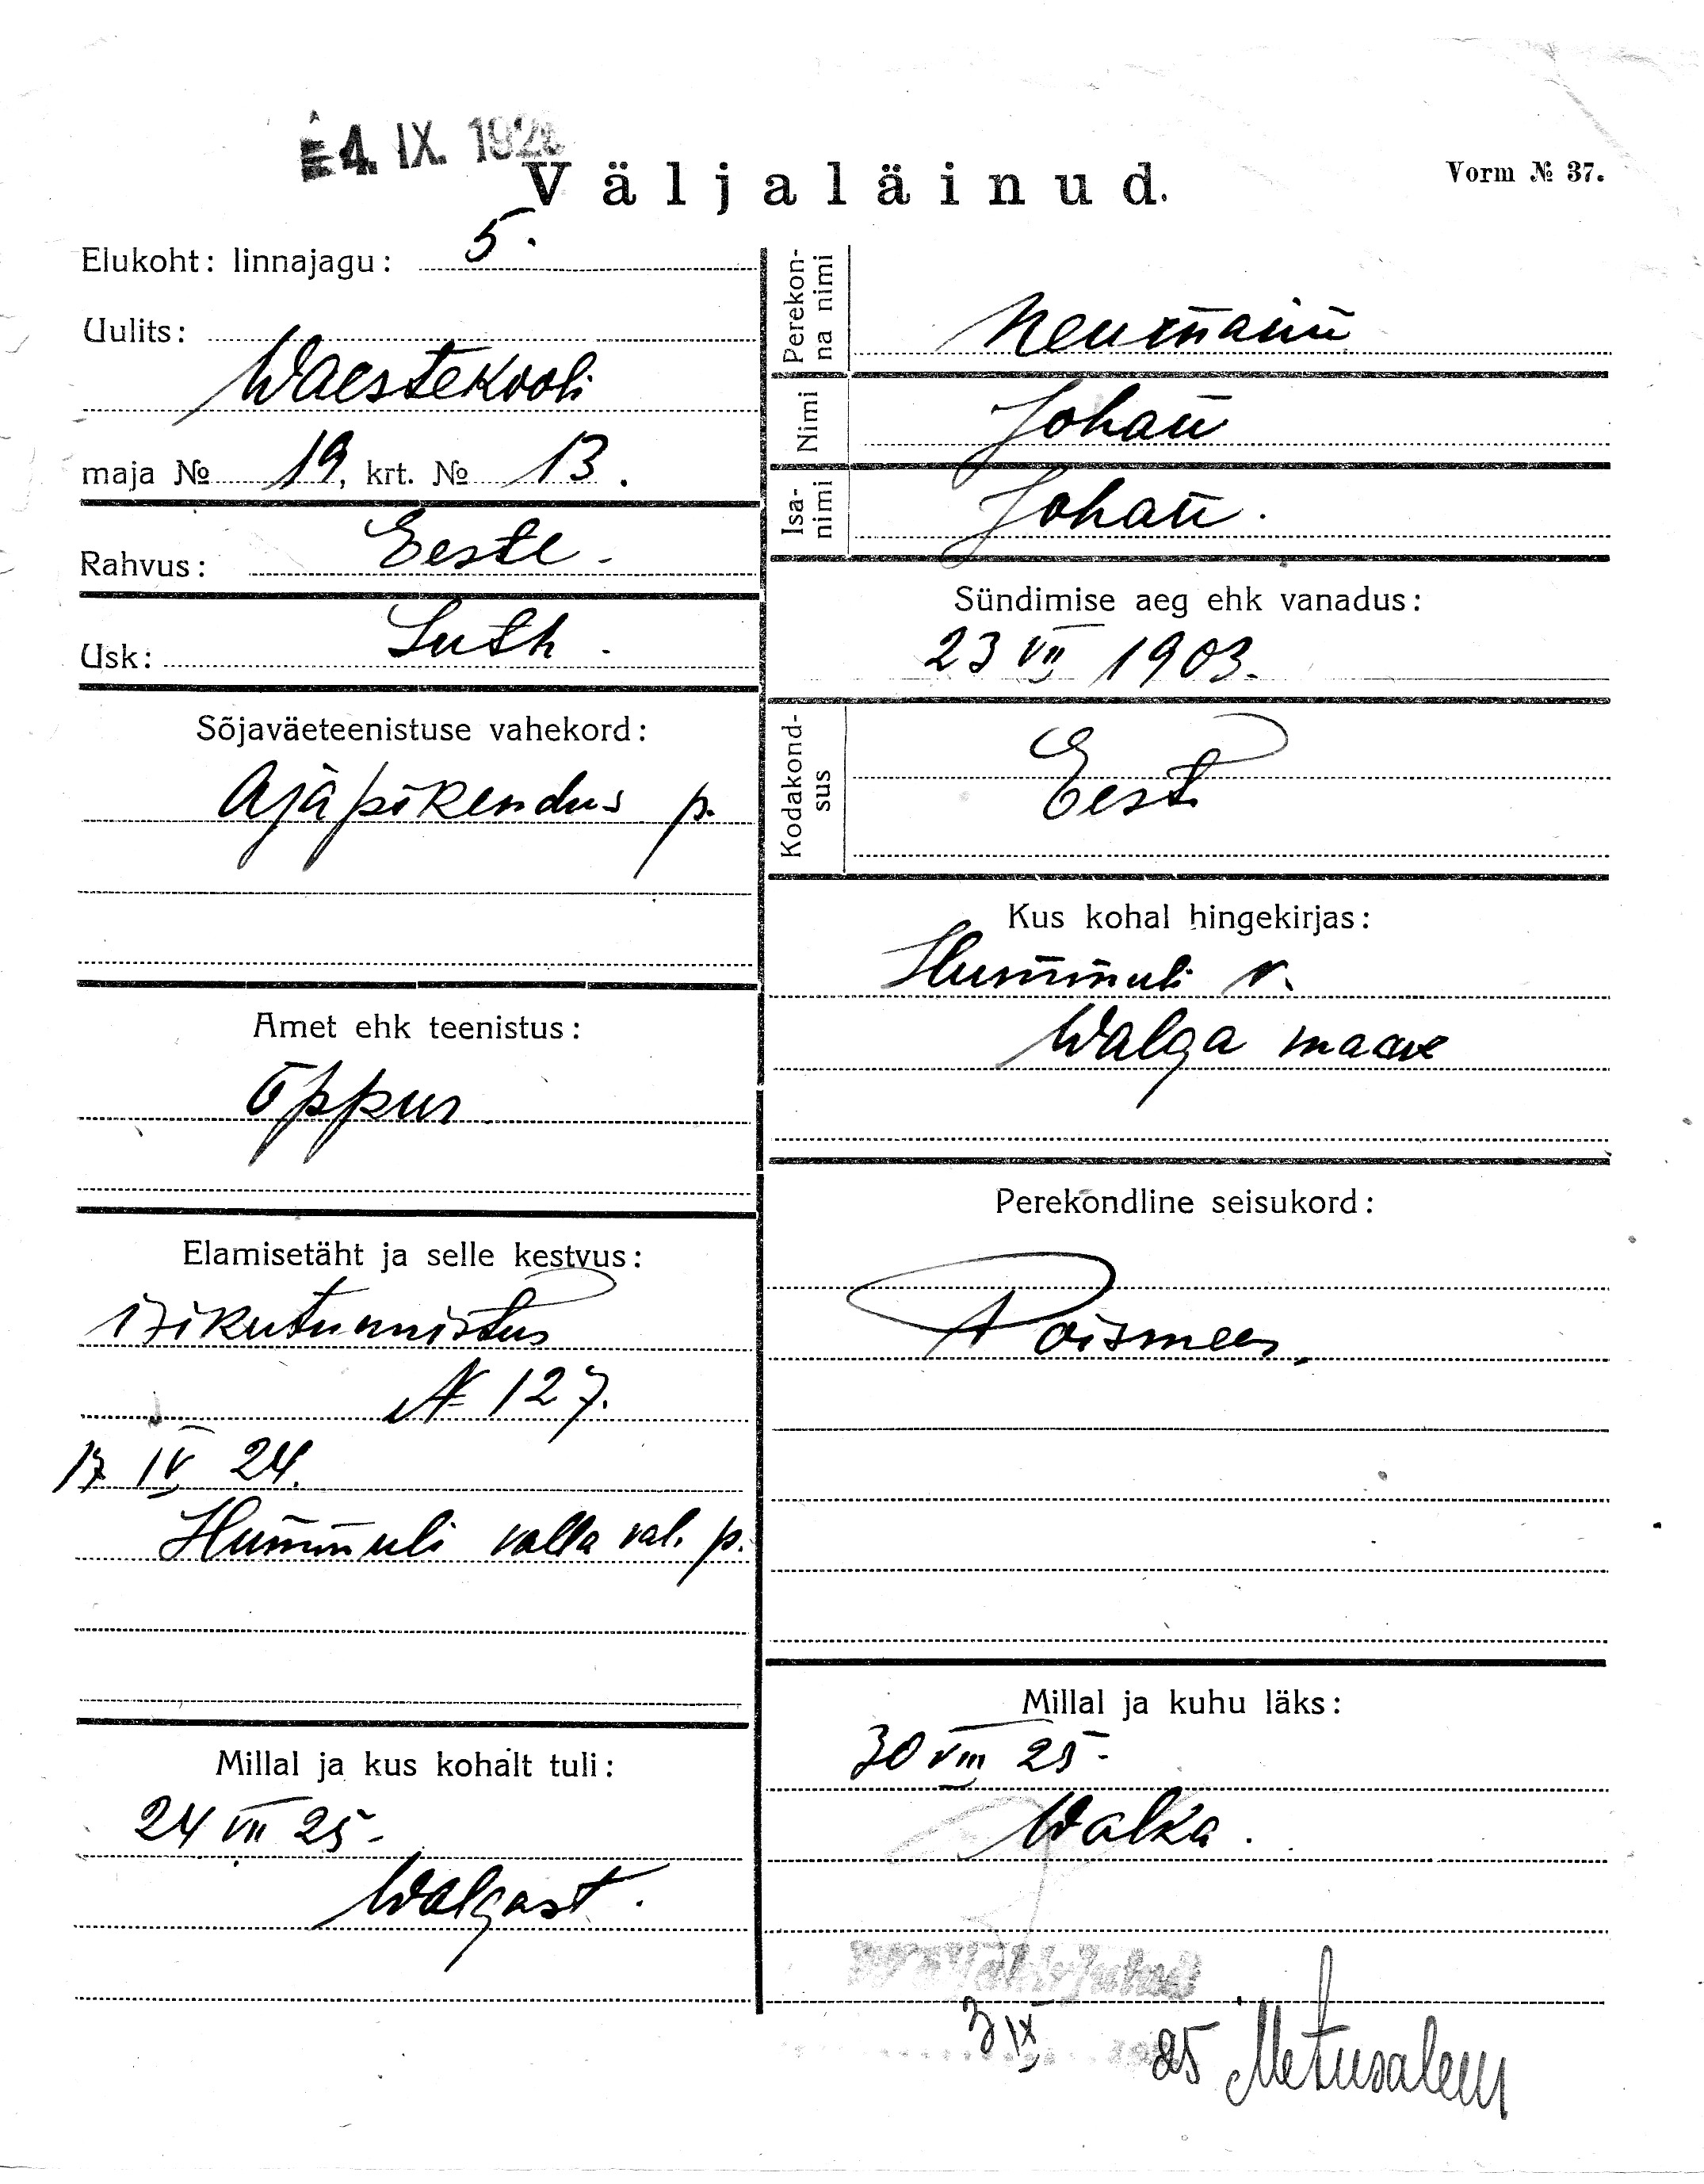 4. IX. 192
Väljaläinud.
Vorm № 37.
Elukoht: linnajagu: 5.
Uulits:
Waestekooli
maja № 19, krt. № 13.
Rahvus: Eestl.
Usk: Luth.
Sõjaväeteenistuse vahekord:
Ajapikendus p.
Amet ehk teenistus:
Õppur
Elamisetäht ja selle kestvus:
isikutunnistus
№ 127.
17 IV 24.
Hummuli valla val. p.
Millal ja kus kohalt tuli:
24 VII 25.
Walgast.
Perekonna nimi
Neumann
Nimi
Johan
Isanimi
Johan.
Sündimise aeg ehk vanadus:
23 VII 1903.
Kodakondsus
Eesti
Kus kohal hingekirjas:
Hummuli v.
Walga maak
Perekondline seisukord:
Poismees.
Millal ja kuhu läks:
30 VIII 25.
Walka.
3 IX 25 Metusalem